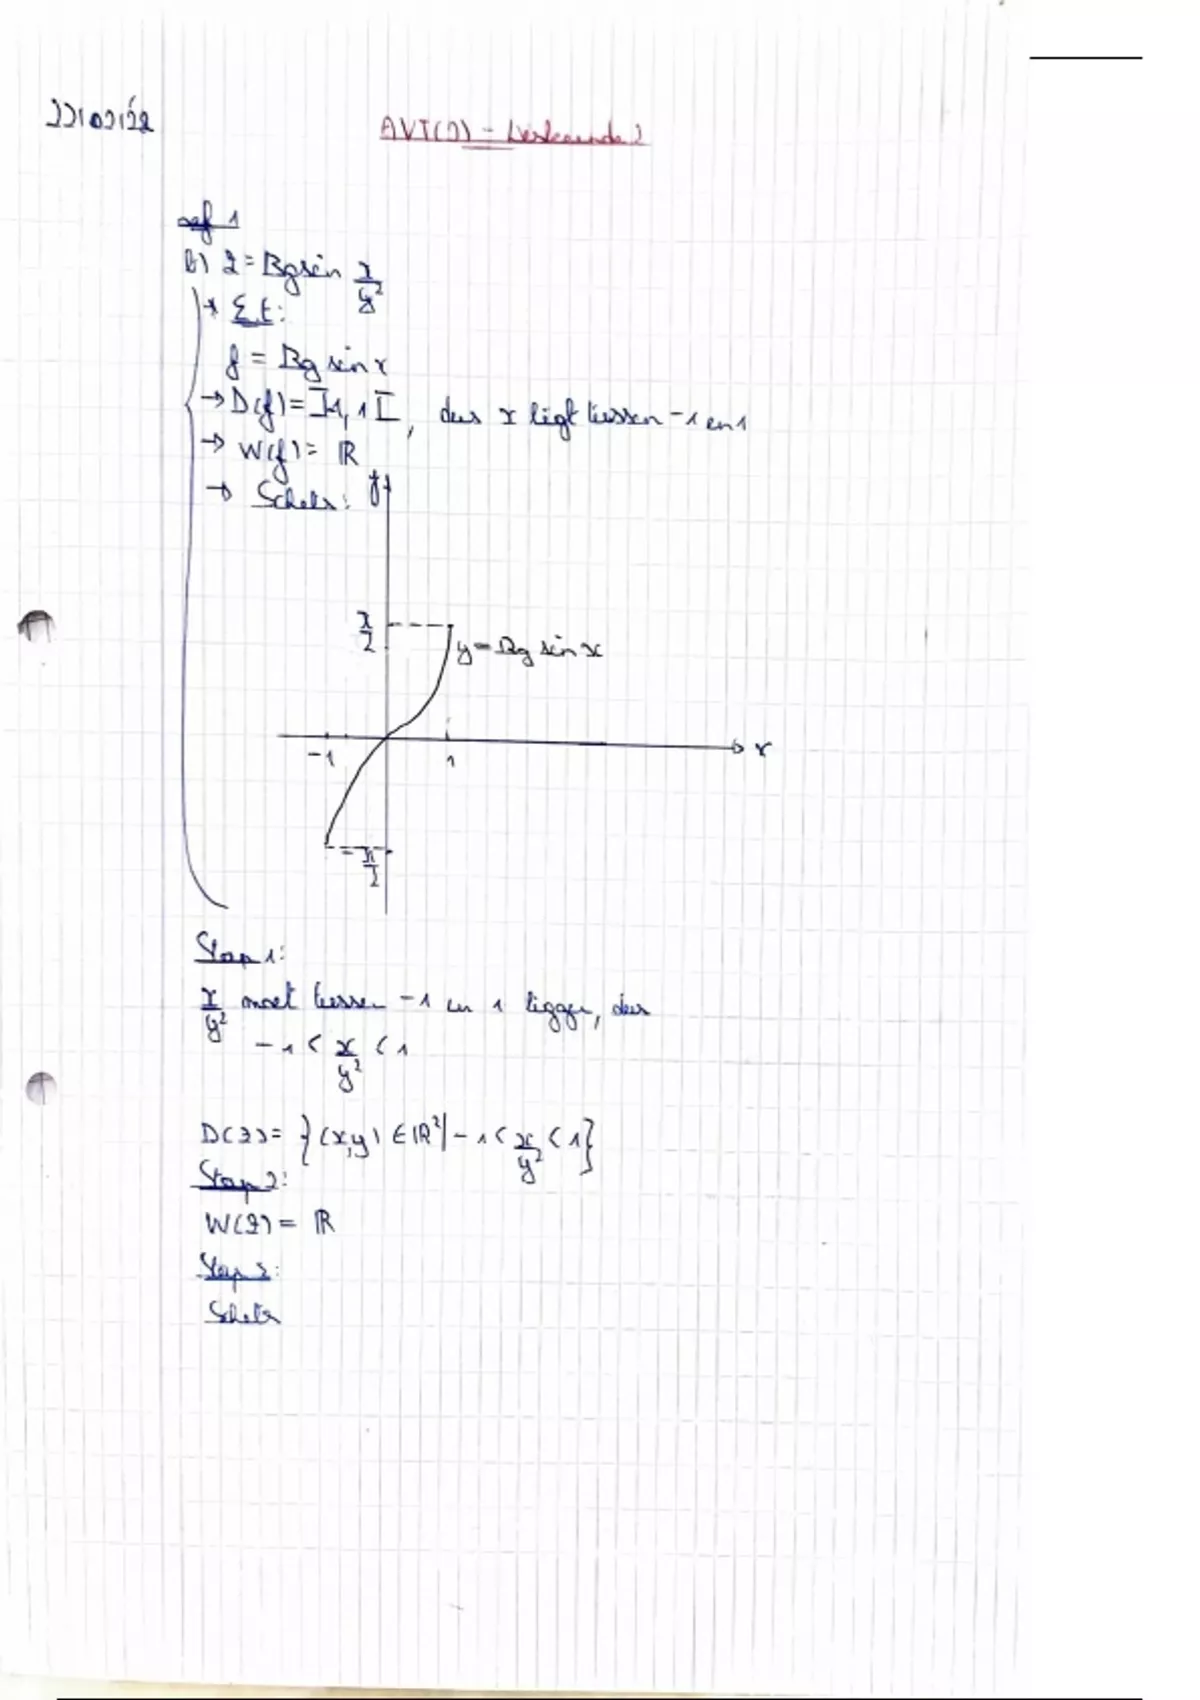 AVI(2) - Wiskunde 2
oef 1
b) z = Bgsin x/y²
* E.t:
f = Bg sin x
→ D(f) = ]-1, 1[, dus x ligt tussen -1 en 1
→ W(f) = ℝ
→ Schets: y
π/2
y = Bg sin x
-1 1 x
-π/2
Stap 1:
x/y² moet tussen -1 en 1 liggen, dus
-1 < x/y² < 1
D(z) = {(x,y) ∈ ℝ² | -1 < x/y² < 1}
Stap 2:
W(z) = ℝ
Stap 3:
Schets